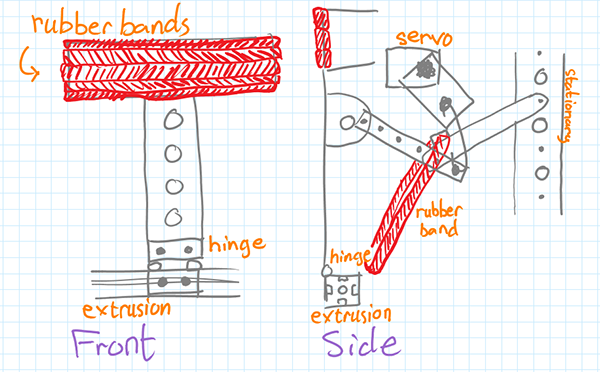 rubber bands
hinge
extrusion
Front
servo
stationary
rubber
band
hinge
extrusion
Side